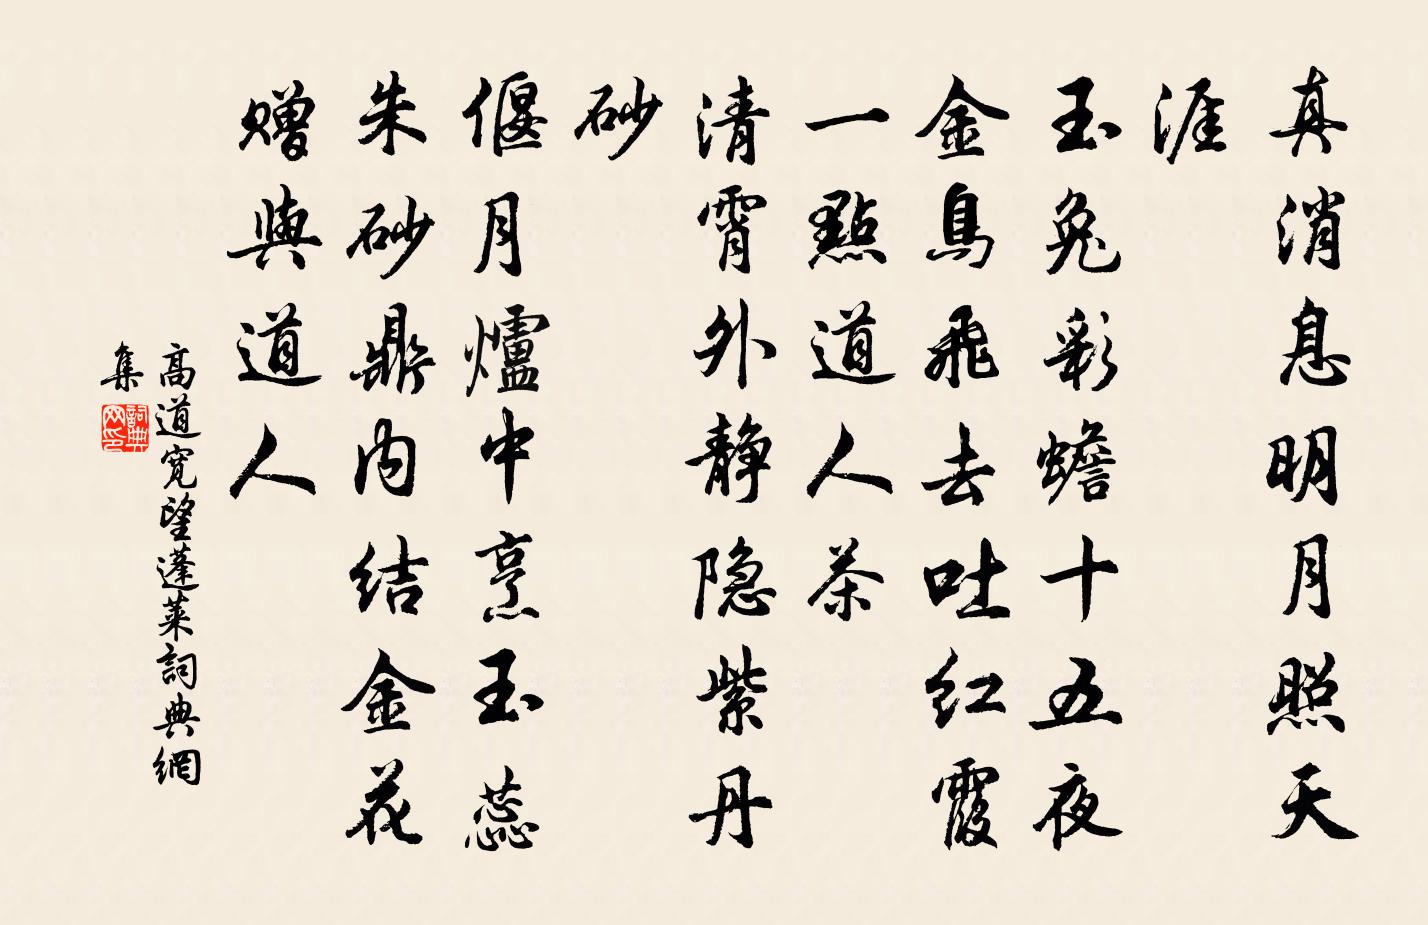 真消息明月照天
涯
玉兔彩蟾十五夜
金烏飛去吐红霞
一點道人茶
清霄外静隐紫丹
砂
偃月爐中烹玉蕊
朱砂鼎内结金花
赠與道人
高道寬望蓬萊詞典網
集
詞典
网印